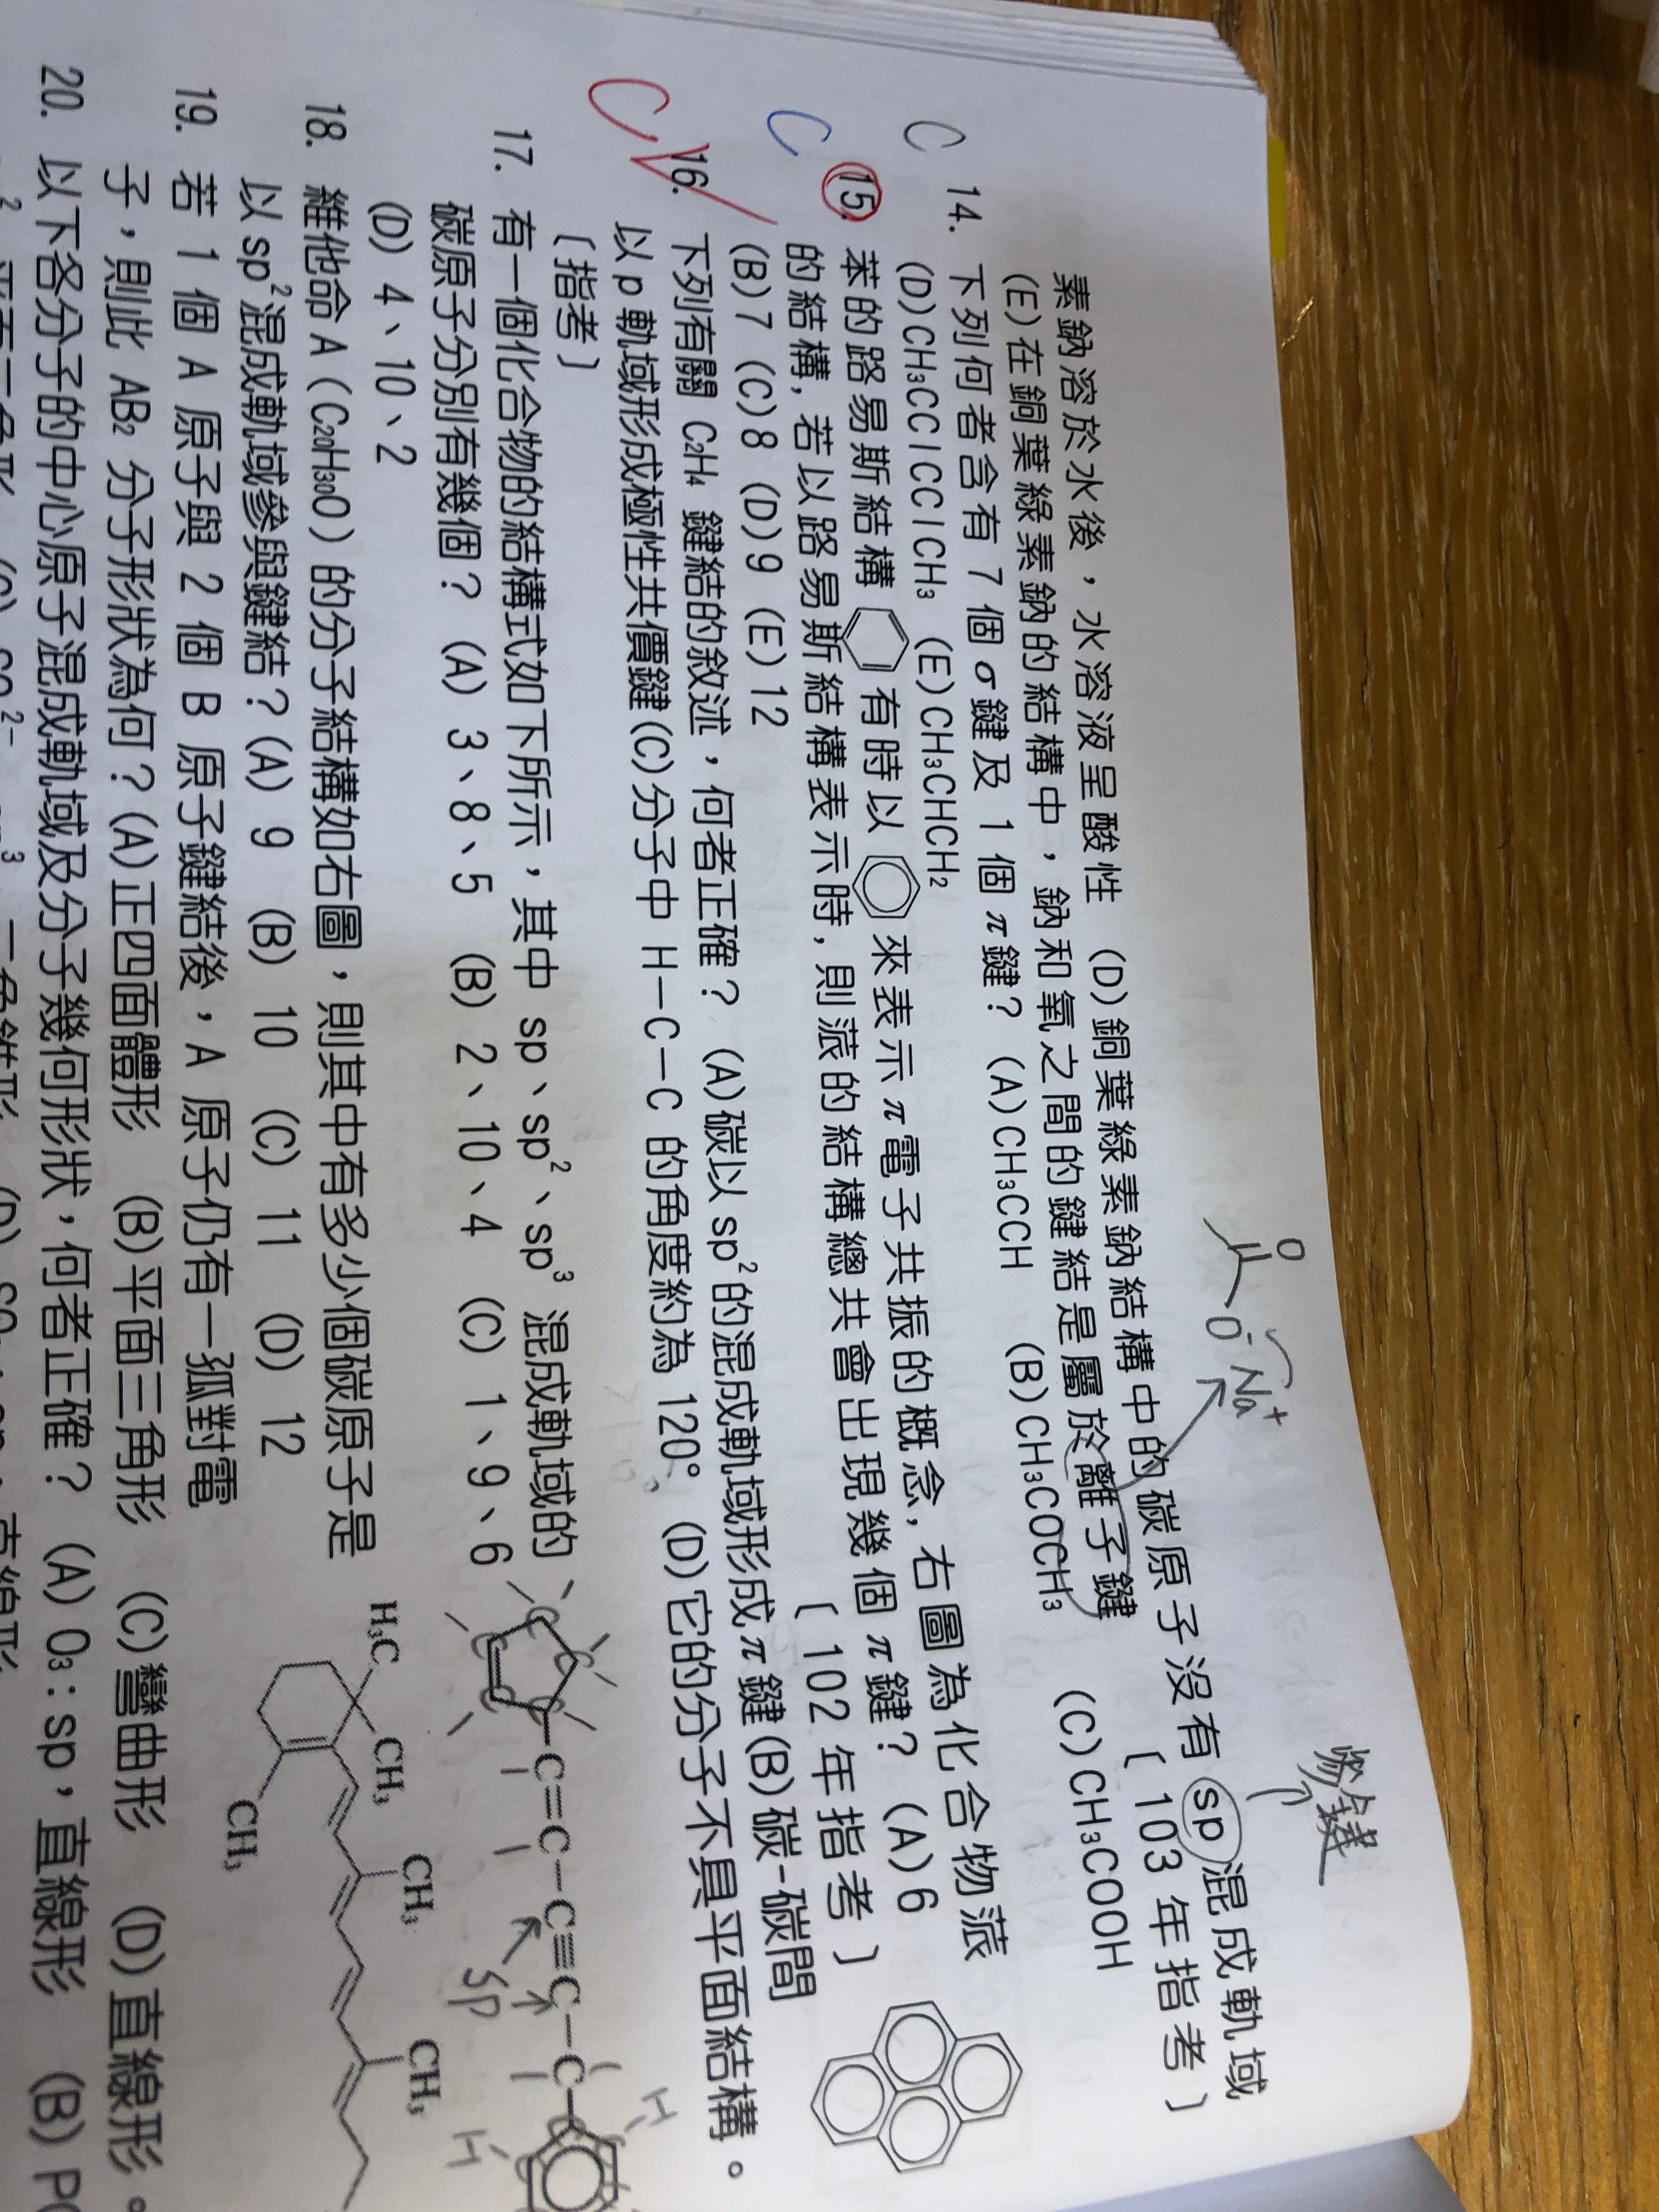 素鈉溶於水後，水溶液呈酸性 (D)銅葉綠素鈉結構中的碳原子沒有 sp 混成軌域
(E)在銅葉綠素鈉的結構中，鈉和氧之間的鍵結是屬於離子鍵 〔103 年指考〕
O
O⁻ Na⁺
C
14. 下列何者含有 7 個 σ 鍵及 1 個 π 鍵？ (A)CH₃CCH (B)CH₃COCH₃ (C)CH₃COOH
(D)CH₃CClCClCH₃ (E)CH₃CHCH₂
C
15. 苯的路易斯結構 有時以 來表示 π 電子共振的概念，右圖為化合物蒎
的結構，若以路易斯結構表示時，則蒎的結構總共會出現幾個 π 鍵？ (A)6
(B)7 (C)8 (D)9 (E)12 〔102 年指考〕
C
16. 下列有關 C₂H₄ 鍵結的敘述，何者正確？ (A)碳以 sp² 的混成軌域形成 π 鍵 (B)碳-碳間
以 p 軌域形成極性共價鍵 (C)分子中 H－C－C 的角度約為 120° (D)它的分子不具平面結構。
〔指考〕
17. 有一個化合物的結構式如下所示，其中 sp、sp²、sp³ 混成軌域的
碳原子分別有幾個？ (A) 3、8、5 (B) 2、10、4 (C) 1、9、6
(D) 4、10、2
C＝C－C≡C－C
sp
H
H
18. 維他命 A（C₂₀H₃₀O）的分子結構如右圖，則其中有多少個碳原子是
以 sp² 混成軌域參與鍵結？(A) 9 (B) 10 (C) 11 (D) 12
H₃C CH₃ CH₃ CH₃
CH₃
19. 若 1 個 A 原子與 2 個 B 原子鍵結後，A 原子仍有一孤對電
子，則此 AB₂ 分子形狀為何？(A)正四面體形 (B)平面三角形 (C)彎曲形 (D)直線形。
20. 以下各分子的中心原子混成軌域及分子幾何形狀，何者正確？ (A) O₃：sp，直線形 (B) P